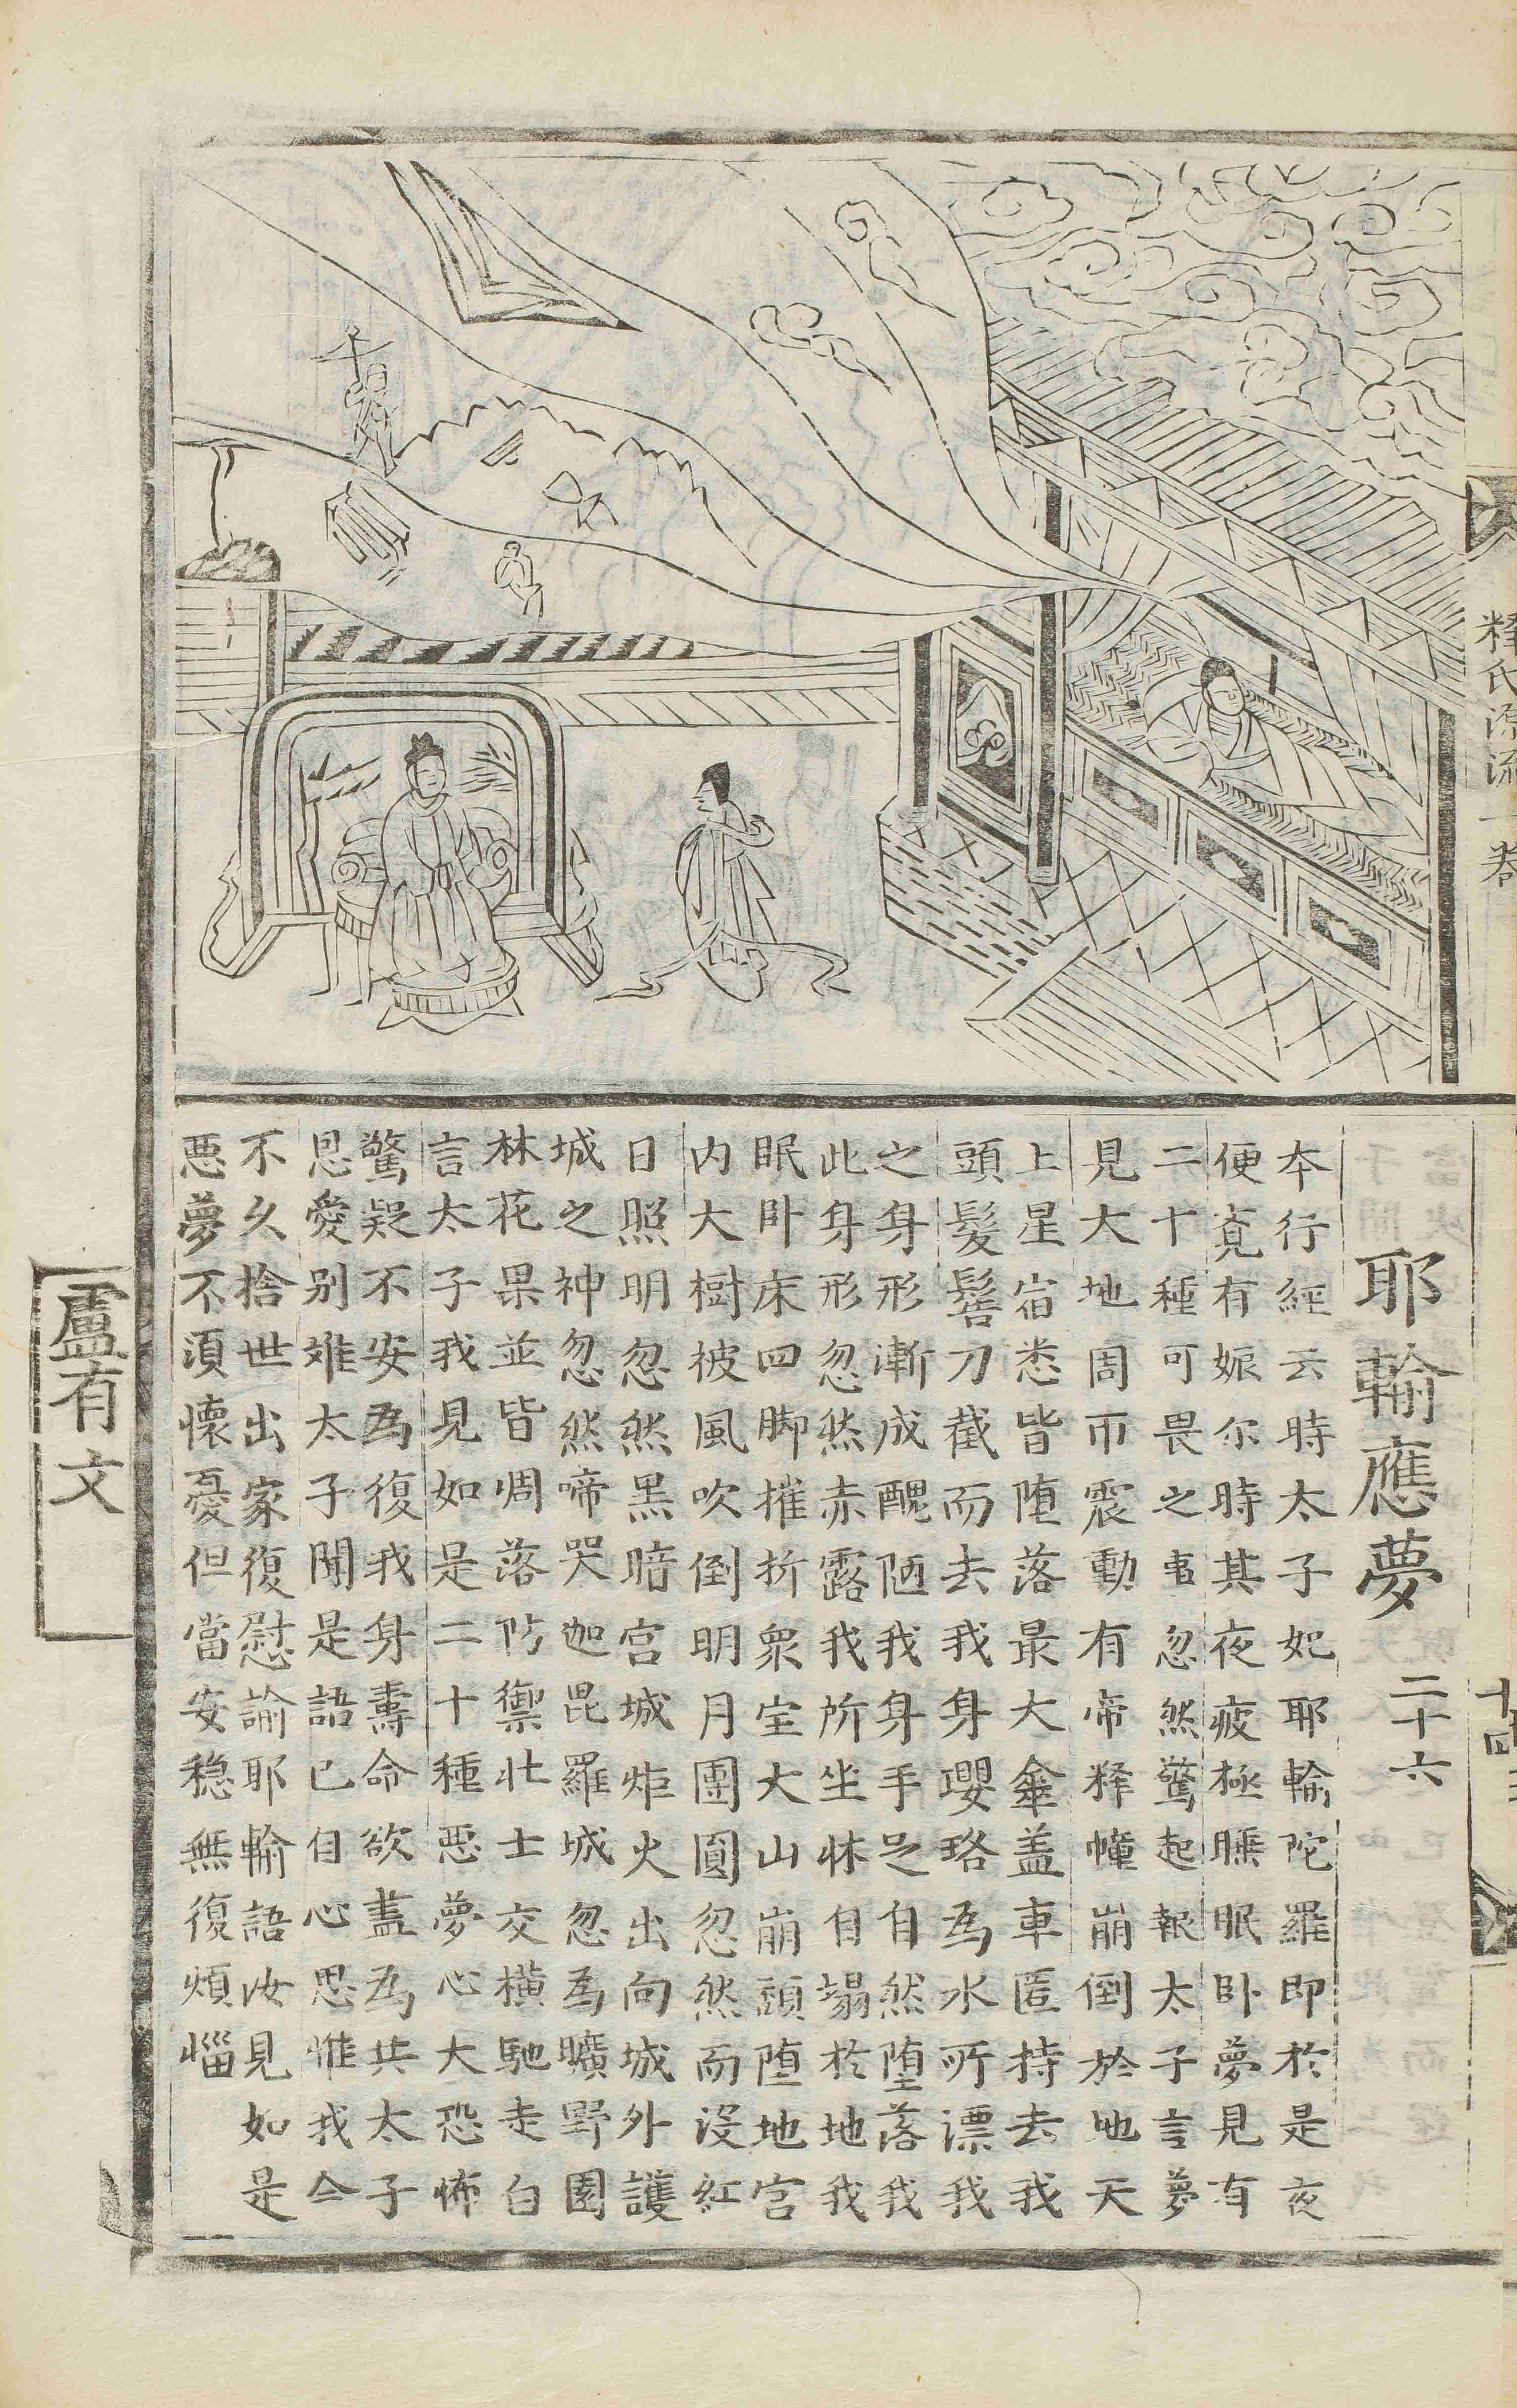 釋氏源流一卷
十四
耶輸應夢 二十六
本行經云時太子妃耶輸陀羅即於是夜
便覺有娠尔時其夜疲極睡眠卧夢見有
二十種可畏之事忽然驚起報太子言夢
見大地周帀震動有帝釋幢崩倒於地天
上星宿悉皆堕落最大傘盖車匿持去我
頭髮髻刀截而去我身瓔珞為水所漂我
之身形漸成醜陋我身手足自然墮落我
此身形忽然赤露我所坐牀自塌於地我
眠卧床四脚摧折衆宝大山崩頹堕地宫
内大樹被風吹倒明月團圓忽然而没紅
日照明忽然黑暗宫城炬火出向城外護
城之神忽然啼哭迦毘羅城忽為曠野園
林花果並皆凋落防禦壮士交横馳走白
言太子我見如是二十種悪夢心大恐怖
驚疑不安為復我身壽命欲盡為共太子
恩愛别難太子聞是語已自心思惟我今
不久捨世出家復慰諭耶輸語汝見如是
悪夢不須懐憂但當安穏無復煩惱
盧有文